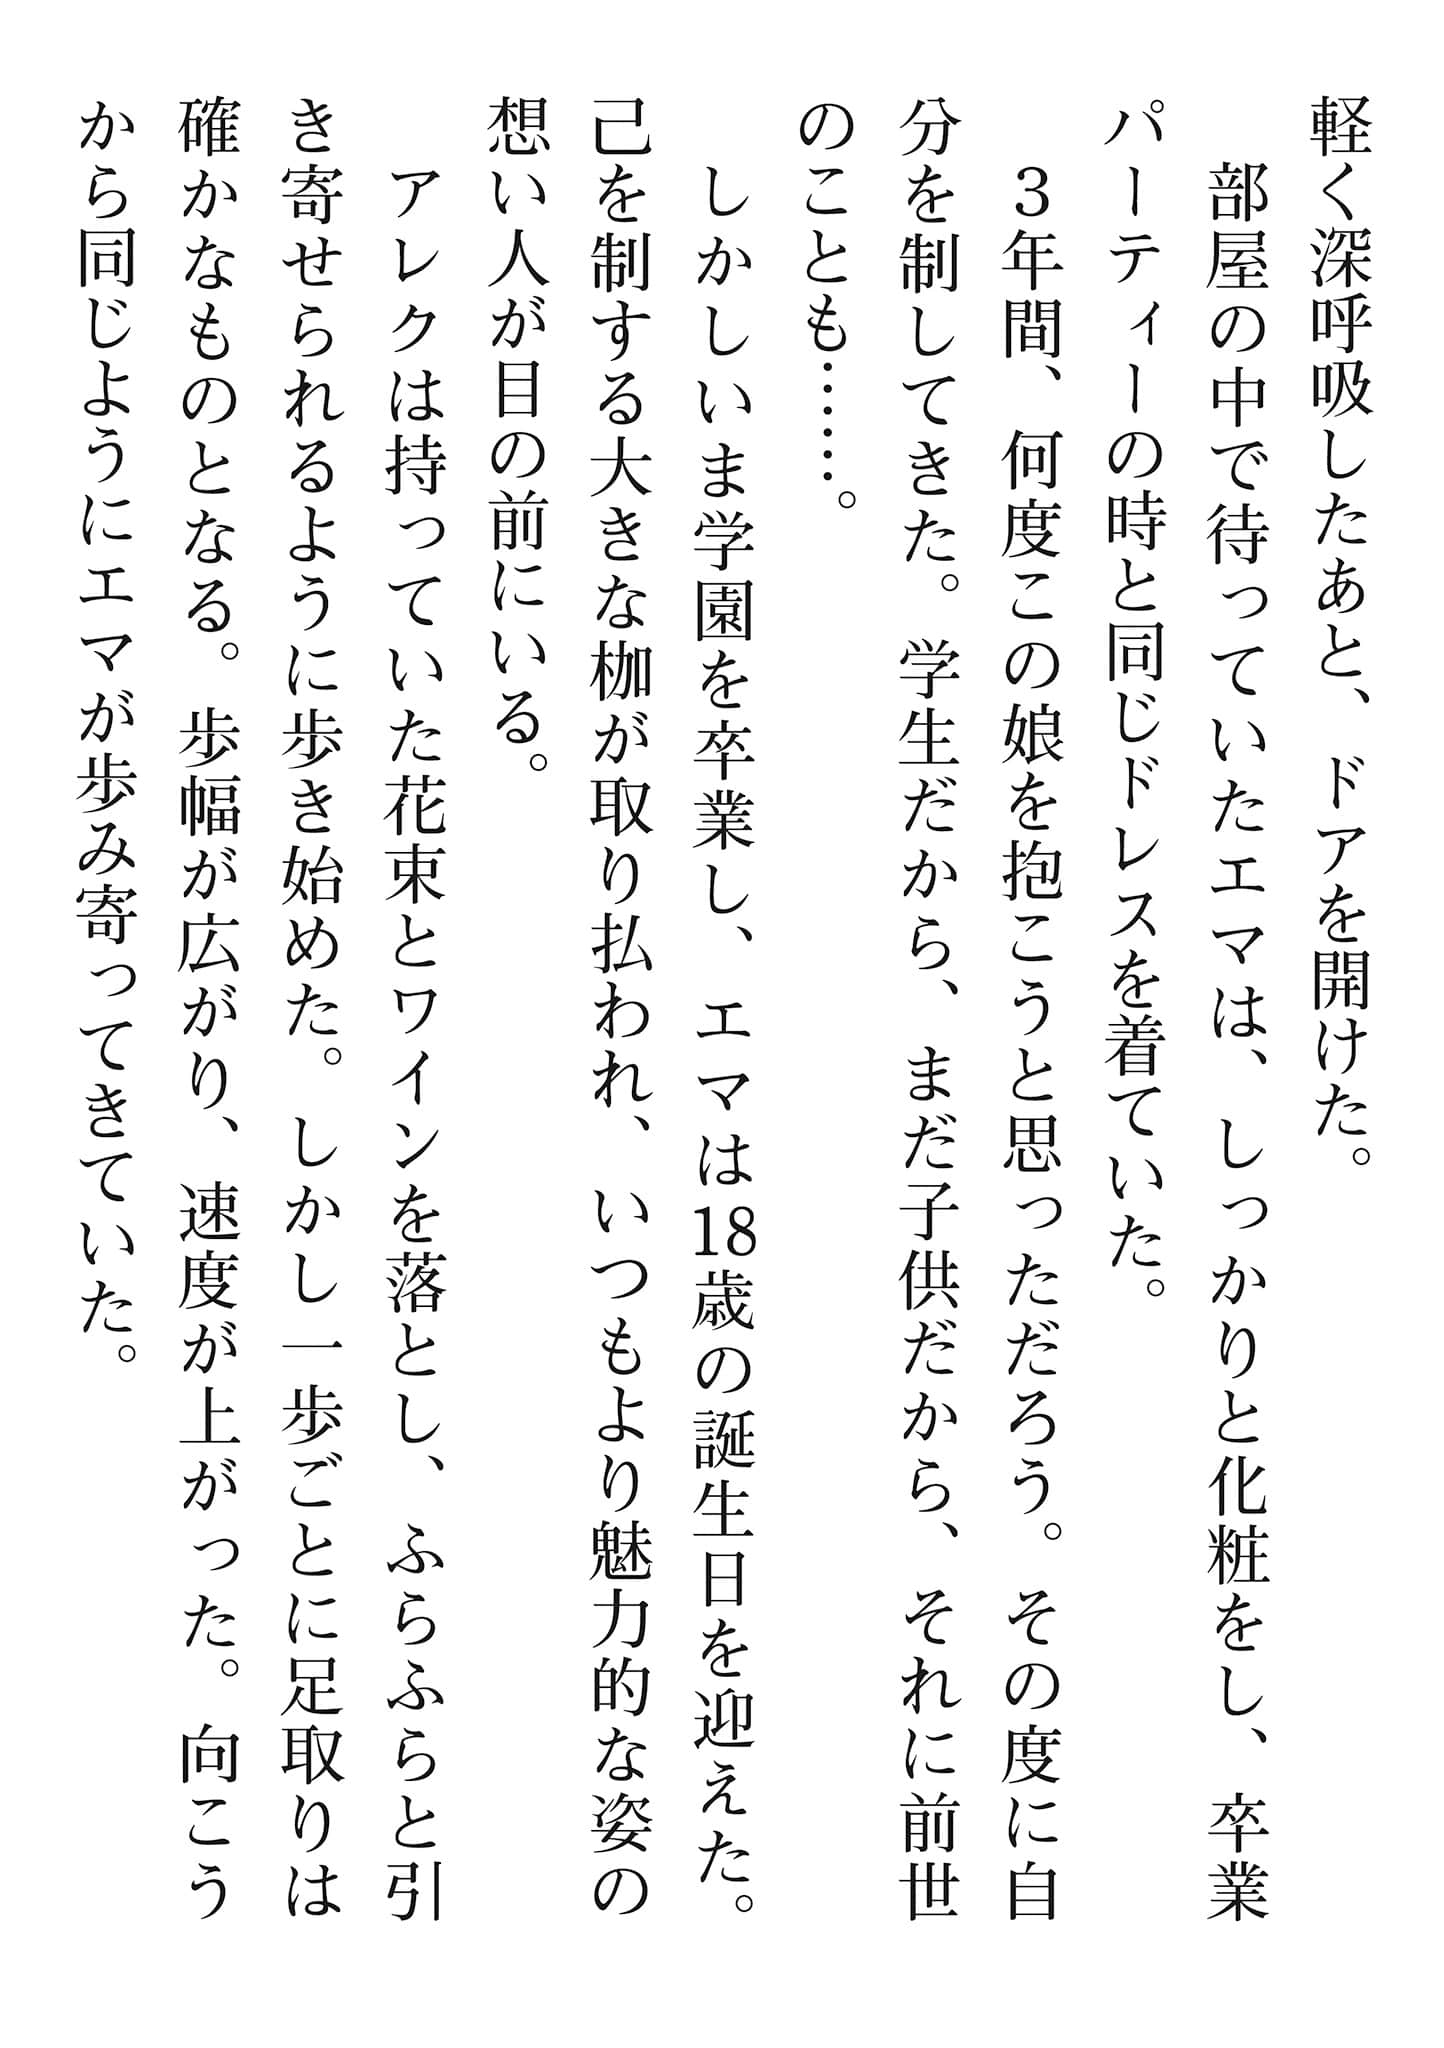 軽く深呼吸したあと、ドアを開けた。
　部屋の中で待っていたエマは、しっかりと化粧をし、卒業
パーティーの時と同じドレスを着ていた。
　３年間、何度この娘を抱こうと思っただろう。その度に自
分を制してきた。学生だから、まだ子供だから、それに前世
のことも………。
　しかしいま学園を卒業し、エマは18歳の誕生日を迎えた。
己を制する大きな枷が取り払われ、いつもより魅力的な姿の
想い人が目の前にいる。
　アレクは持っていた花束とワインを落とし、ふらふらと引
き寄せられるように歩き始めた。しかし一歩ごとに足取りは
確かなものとなる。歩幅が広がり、速度が上がった。向こう
から同じようにエマが歩み寄ってきていた。